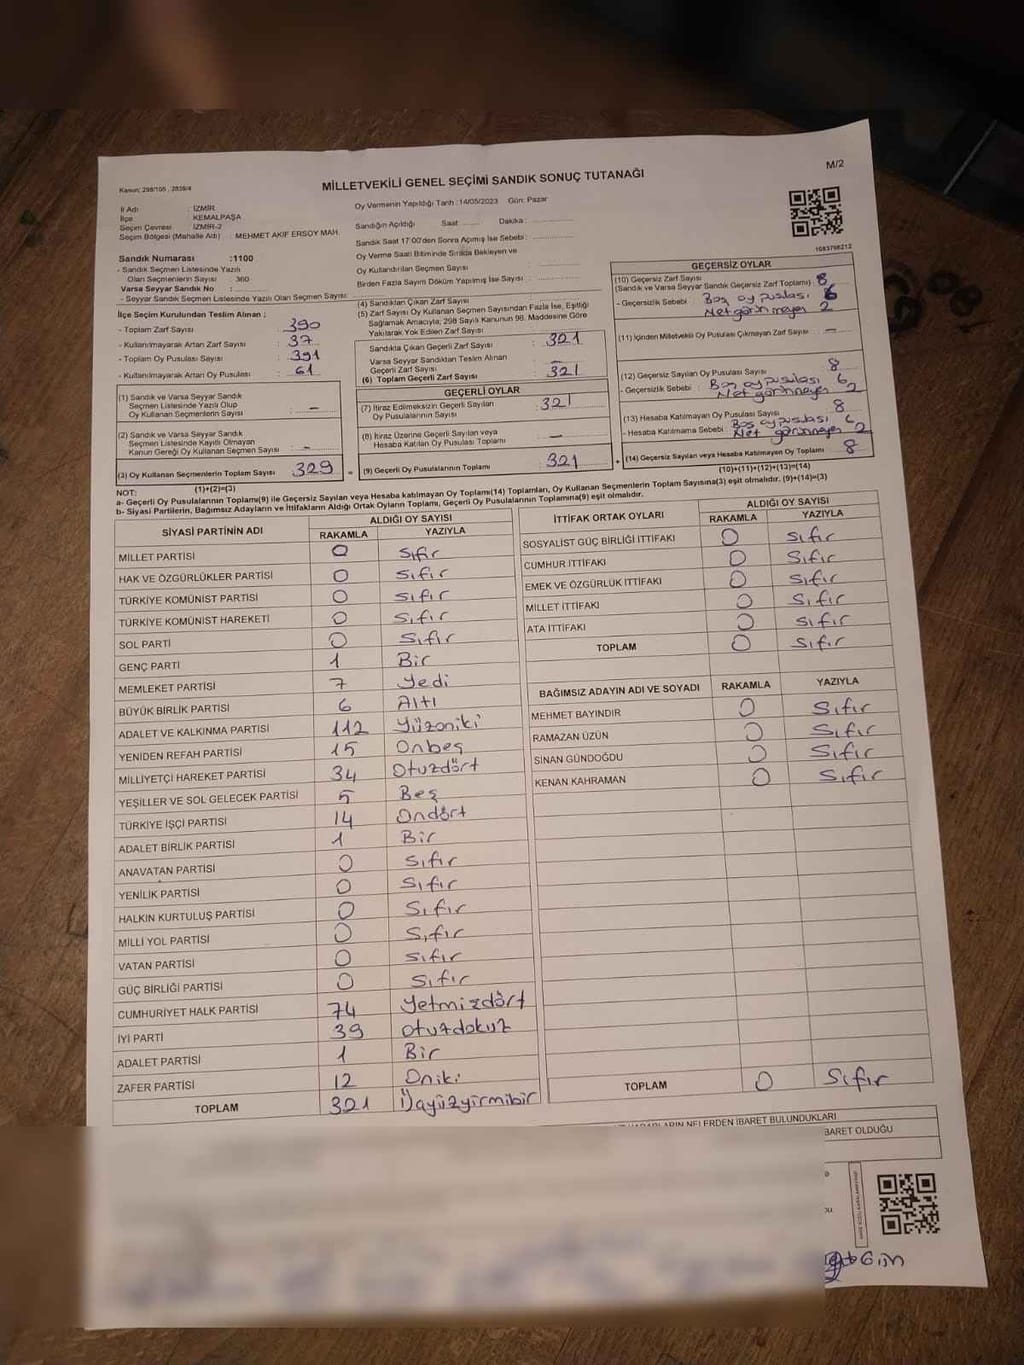 Kanun: 298/105 , 2839/4
MİLLETVEKİLİ GENEL SEÇİMİ SANDIK SONUÇ TUTANAĞI
M/2
İl Adı : İZMİR
İlçe : KEMALPAŞA
Seçim Çevresi : İZMİR-2
Seçim Bölgesi (Mahalle Adı) : MEHMET AKİF ERSOY MAH.
Oy Vermenin Yapıldığı Tarih :14/05/2023 Gün: Pazar
Sandığın Açıldığı Saat: ........ Dakika: ................
Sandık Saat 17:00'den Sonra Açılmış İse Sebebi: ................
Oy Verme Saati Bitiminde Sırada Bekleyen ve
Oy Kullandırılan Seçmen Sayısı : ................
Birden Fazla Sayım Döküm Yapılmış İse Sayısı : ................
1083798212
Sandık Numarası :1100
- Sandık Seçmen Listesinde Yazılı
Olan Seçmenlerin Sayısı : 360
Varsa Seyyar Sandık No :
- Seyyar Sandık Seçmen Listesinde Yazılı Olan Seçmen Sayısı:
İlçe Seçim Kurulundan Teslim Alınan ;
- Toplam Zarf Sayısı : 390
- Kullanılmayarak Artan Zarf Sayısı : 37
- Toplam Oy Pusulası Sayısı : 391
- Kullanılmayarak Artan Oy Pusulası : 61
(1) Sandık ve Varsa Seyyar Sandık
Seçmen Listesinde Yazılı Olup
Oy Kullanan Seçmenlerin Sayısı : –
(2) Sandık ve Varsa Seyyar Sandık
Seçmen Listesinde Kayıtlı Olmayan
Kanun Gereği Oy Kullanan Seçmen Sayısı : –
(3) Oy Kullanan Seçmenlerin Toplam Sayısı 329
(1)+(2)=(3)
(4) Sandıktan Çıkan Zarf Sayısı :
(5) Zarf Sayısı Oy Kullanan Seçmen Sayısından Fazla İse, Eşitliği
Sağlamak Amacıyla, 298 Sayılı Kanunun 98. Maddesine Göre
Yakılarak Yok Edilen Zarf Sayısı :
Sandıkta Çıkan Geçerli Zarf Sayısı : 321
Varsa Seyyar Sandıktan Teslim Alınan
Geçerli Zarf Sayısı : –
(6) Toplam Geçerli Zarf Sayısı : 321
GEÇERLİ OYLAR
(7) İtiraz Edilmeksizin Geçerli Sayılan
Oy Pusulalarının Sayısı : 321
(8) İtiraz Üzerine Geçerli Sayılan veya
Hesaba Katılan Oy Pusulası Toplamı : –
= (9) Geçerli Oy Pusulalarının Toplamı : 321
GEÇERSİZ OYLAR
(10) Geçersiz Zarf Sayısı
(Sandık ve Varsa Seyyar Sandık Geçersiz Zarf Toplamı) : 8
- Geçersizlik Sebebi : Boş oy pusulası 6
Net görünmeyen 2
(11) İçinden Milletvekili Oy Pusulası Çıkmayan Zarf Sayısı : –
(12) Geçersiz Sayılan Oy Pusulası Sayısı : 8
- Geçersizlik Sebebi : Boş oy pusulası 6
Net görünmeyen 2
(13) Hesaba Katılmayan Oy Pusulası Sayısı : 8
- Hesaba Katılmama Sebebi : Boş oy pusulası 6
Net görünmeyen 2
+ (14) Geçersiz Sayılan veya Hesaba Katılmayan Oy Toplamı : 8
(10)+(11)+(12)+(13)=(14)
NOT:
a- Geçerli Oy Pusulalarının Toplamı(9) ile Geçersiz Sayılan veya Hesaba katılmayan Oy Toplamı(14) Toplamları, Oy Kullanan Seçmenlerin Toplam Sayısına(3) eşit olmalıdır. (9)+(14)=(3)
b- Siyasi Partilerin, Bağımsız Adayların ve İttifakların Aldığı Ortak Oyların Toplamı, Geçerli Oy Pusulalarının Toplamına(9) eşit olmalıdır.
SİYASİ PARTİNİN ADI ALDIĞI OY SAYISI
RAKAMLA YAZIYLA
MİLLET PARTİSİ 0 Sıfır
HAK VE ÖZGÜRLÜKLER PARTİSİ 0 Sıfır
TÜRKİYE KOMÜNİST PARTİSİ 0 Sıfır
TÜRKİYE KOMÜNİST HAREKETİ 0 Sıfır
SOL PARTİ 0 Sıfır
GENÇ PARTİ 1 Bir
MEMLEKET PARTİSİ 7 Yedi
BÜYÜK BİRLİK PARTİSİ 6 Altı
ADALET VE KALKINMA PARTİSİ 112 Yüzoniki
YENİDEN REFAH PARTİSİ 15 Onbeş
MİLLİYETÇİ HAREKET PARTİSİ 34 Otuzdört
YEŞİLLER VE SOL GELECEK PARTİSİ 5 Beş
TÜRKİYE İŞÇİ PARTİSİ 14 Ondört
ADALET BİRLİK PARTİSİ 1 Bir
ANAVATAN PARTİSİ 0 Sıfır
YENİLİK PARTİSİ 0 Sıfır
HALKIN KURTULUŞ PARTİSİ 0 Sıfır
MİLLİ YOL PARTİSİ 0 Sıfır
VATAN PARTİSİ 0 Sıfır
GÜÇ BİRLİĞİ PARTİSİ 0 Sıfır
CUMHURİYET HALK PARTİSİ 74 Yetmizdört
İYİ PARTİ 39 Otuzdokuz
ADALET PARTİSİ 1 Bir
ZAFER PARTİSİ 12 Oniki
TOPLAM 321 Üçyüzyirmibir
İTTİFAK ORTAK OYLARI ALDIĞI OY SAYISI
RAKAMLA YAZIYLA
SOSYALİST GÜÇ BİRLİĞİ İTTİFAKI 0 Sıfır
CUMHUR İTTİFAKI 0 Sıfır
EMEK VE ÖZGÜRLÜK İTTİFAKI 0 Sıfır
MİLLET İTTİFAKI 0 Sıfır
ATA İTTİFAKI 0 Sıfır
TOPLAM 0 Sıfır
BAĞIMSIZ ADAYIN ADI VE SOYADI RAKAMLA YAZIYLA
MEHMET BAYINDIR 0 Sıfır
RAMAZAN ÜZÜN 0 Sıfır
SİNAN GÜNDOĞDU 0 Sıfır
KENAN KAHRAMAN 0 Sıfır
TOPLAM 0 Sıfır
NELERDEN İBARET BULUNDUKLARI
BARET OLDUĞU